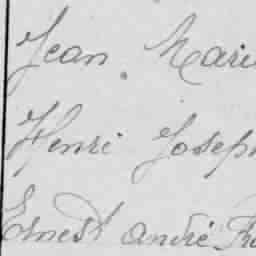 Jean Mari
Henri Joseph
Ernest André Fr